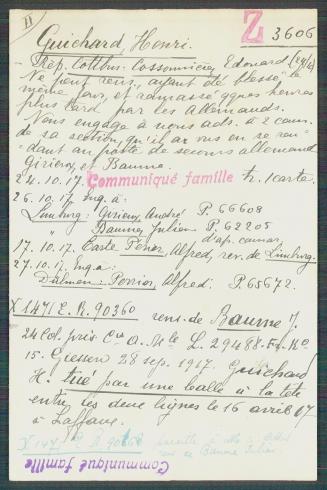 Guichard, Henri.
Z 3606
Rép. Cottbus. Cossonnière, Edouard
Ne peut rens. ayant été blessé le
même jour, et ramassé qques heures
plus tard par les Allemands.
Nous engage à nous ads. à 2 cam.
de sa section, qu'il a vus en se ren-
dant au poste de secours allemand
et Baume.
24.10.17. Communiqué famille tr. 1 carte.
26.10.17. Enq. à:
Limburg: André P. 66608
" Julien P. 62205
d'ap. camar.
17.10.17. Carte Alfred, rev. de Limburg.
27.10.17 Enq. à:
Dülmen Alfred. P. 65672.
X 1471 E. R. 90360 rens. de Baume J.
24 Col. pris. Cie A. Mle L. 29488.
15. Giessen 28 sep. 1917. Guichard
H. tué par une balle à la tête
entre les deux lignes le 16 avril 17
à Laffaux.
X 1471 E. R. 90360
Communiqué famille